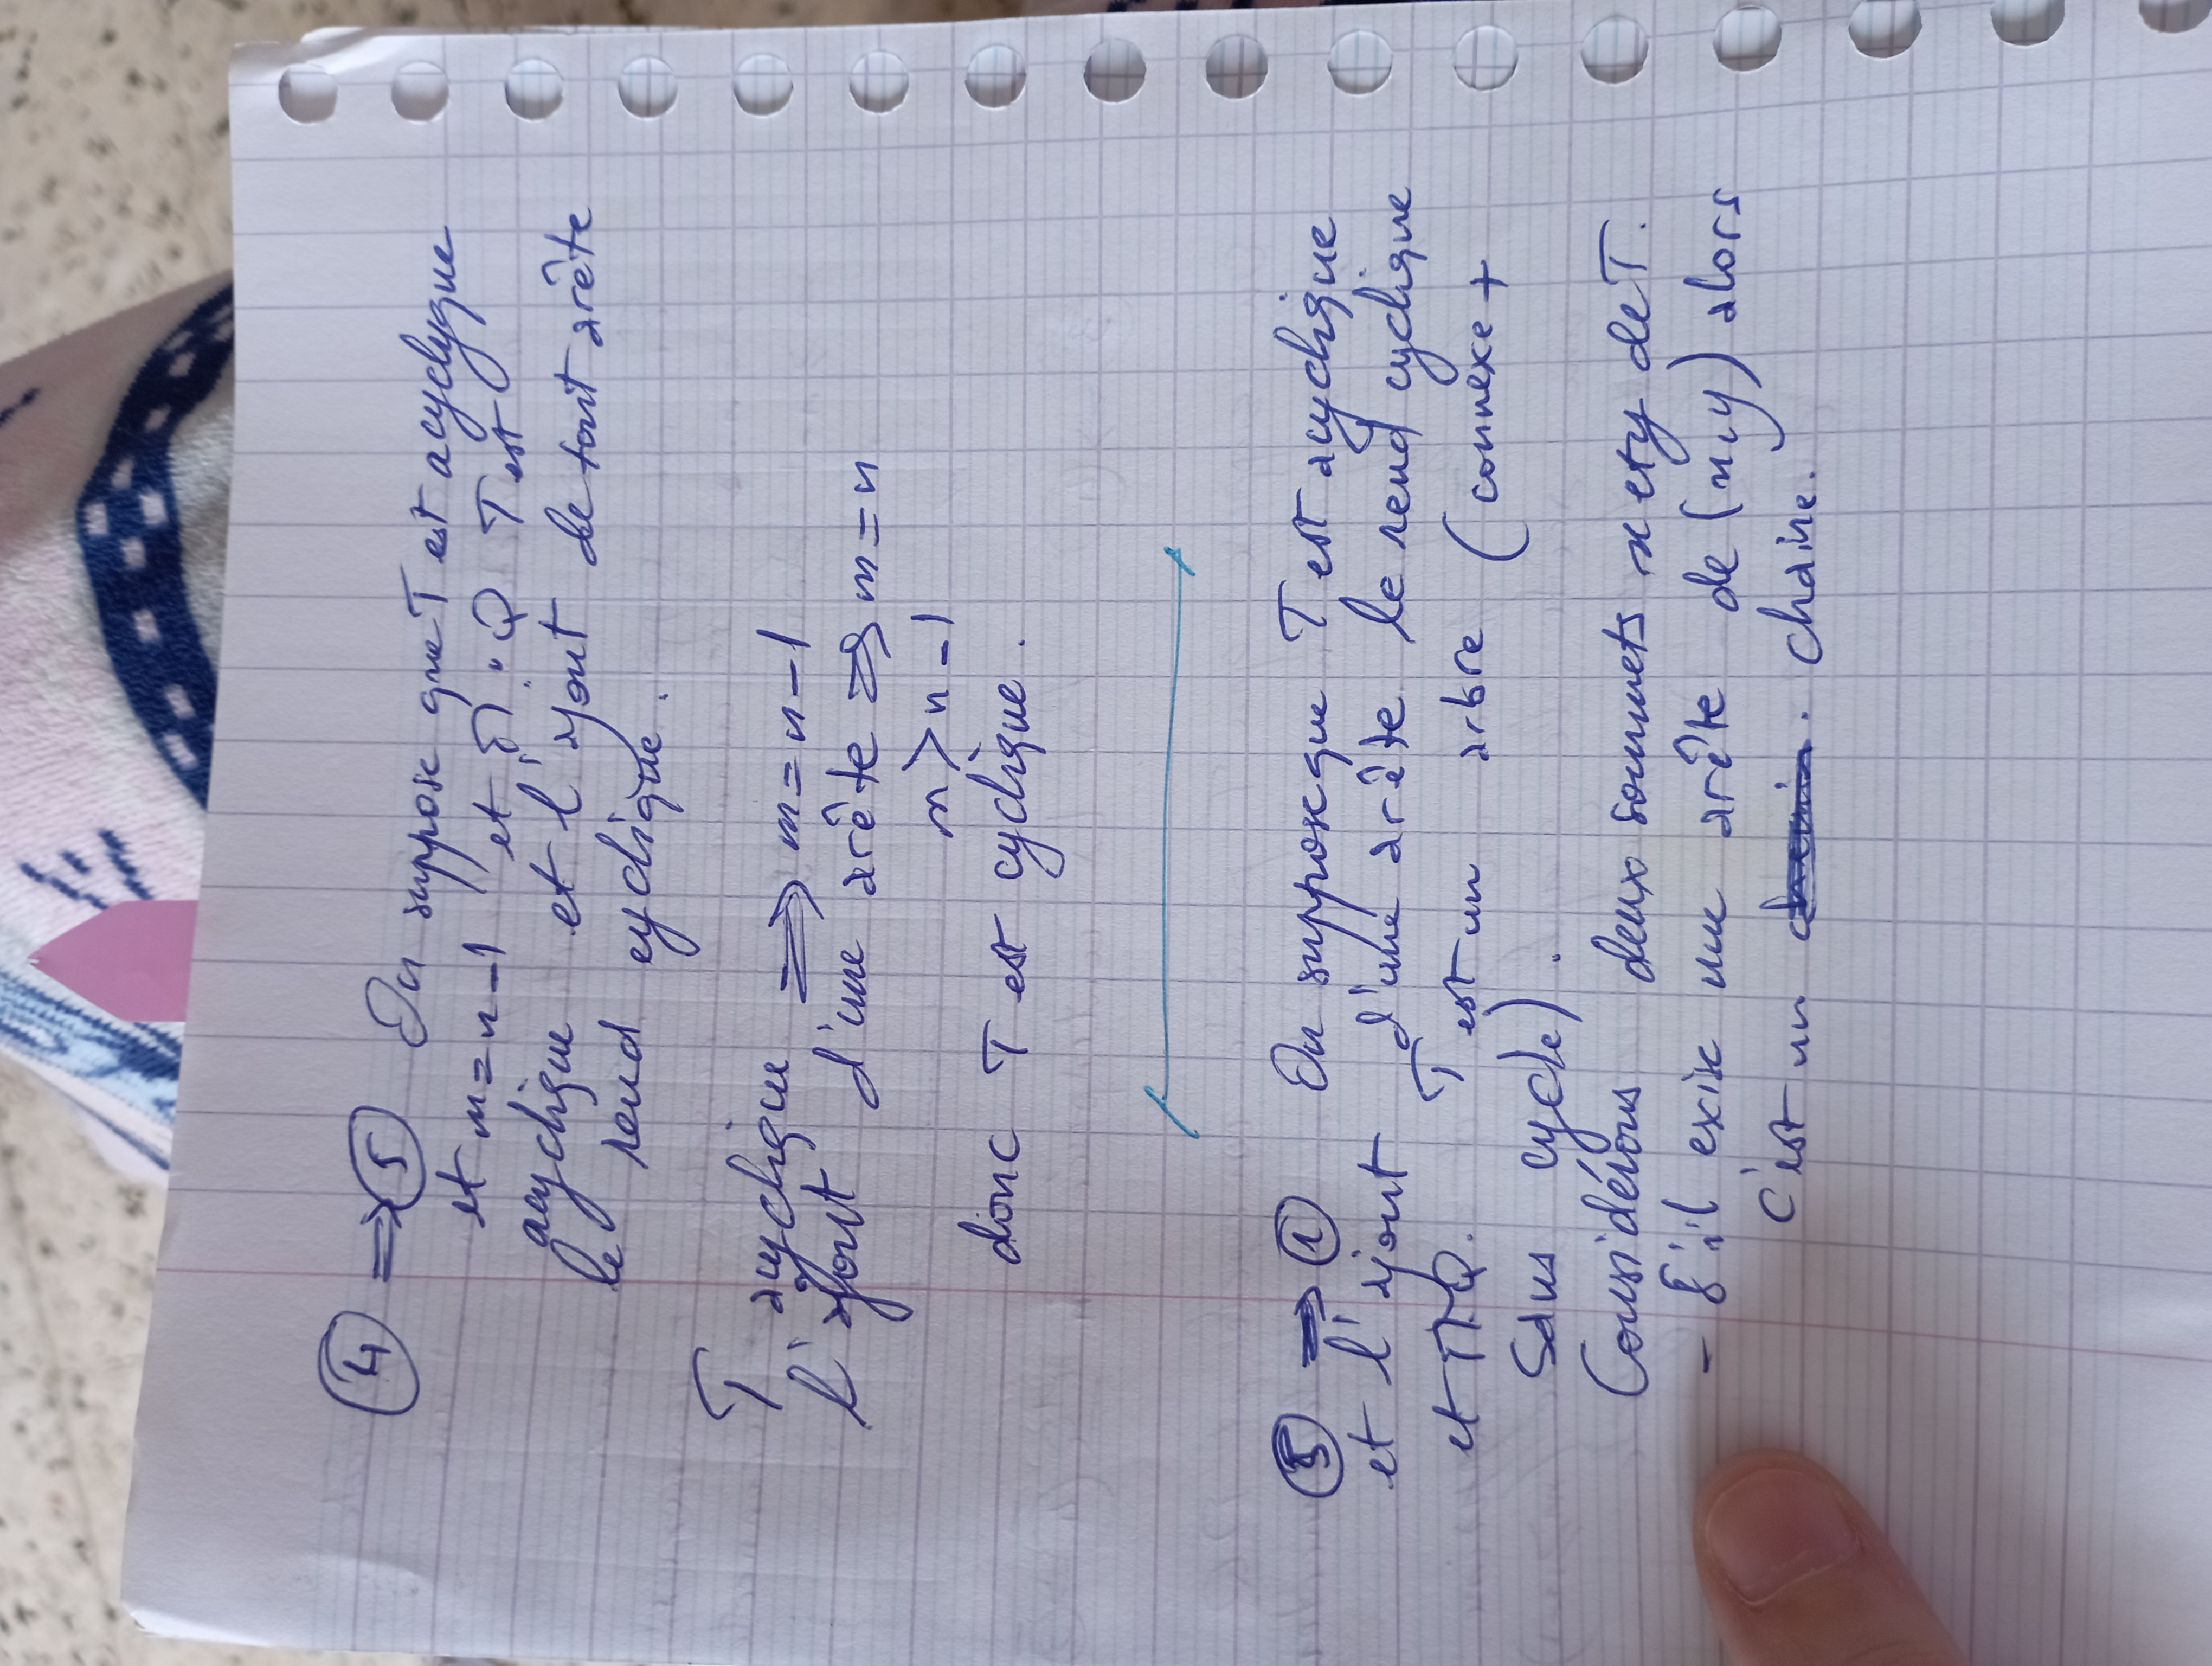 ④ ⇒ ⑤ On suppose que T est acyclyque
et m = n - 1 et M.Q T est
acyclique et l'ajout de tout arête
le rend cyclique.
T acyclique ⇒ m = n - 1
l'ajout d'une arête ⇒ m = n
m > n - 1
donc T est cyclique.
⑤ ⇒ ① On suppose que T est acyclique
et l'ajout d'une arête le rend cyclique
et M.Q. T est un arbre (connexe +
sans cycle).
Considérons deux sommets x et y de T.
- S'il existe une arête de (x, y) alors
c'est un chemin. chaine.